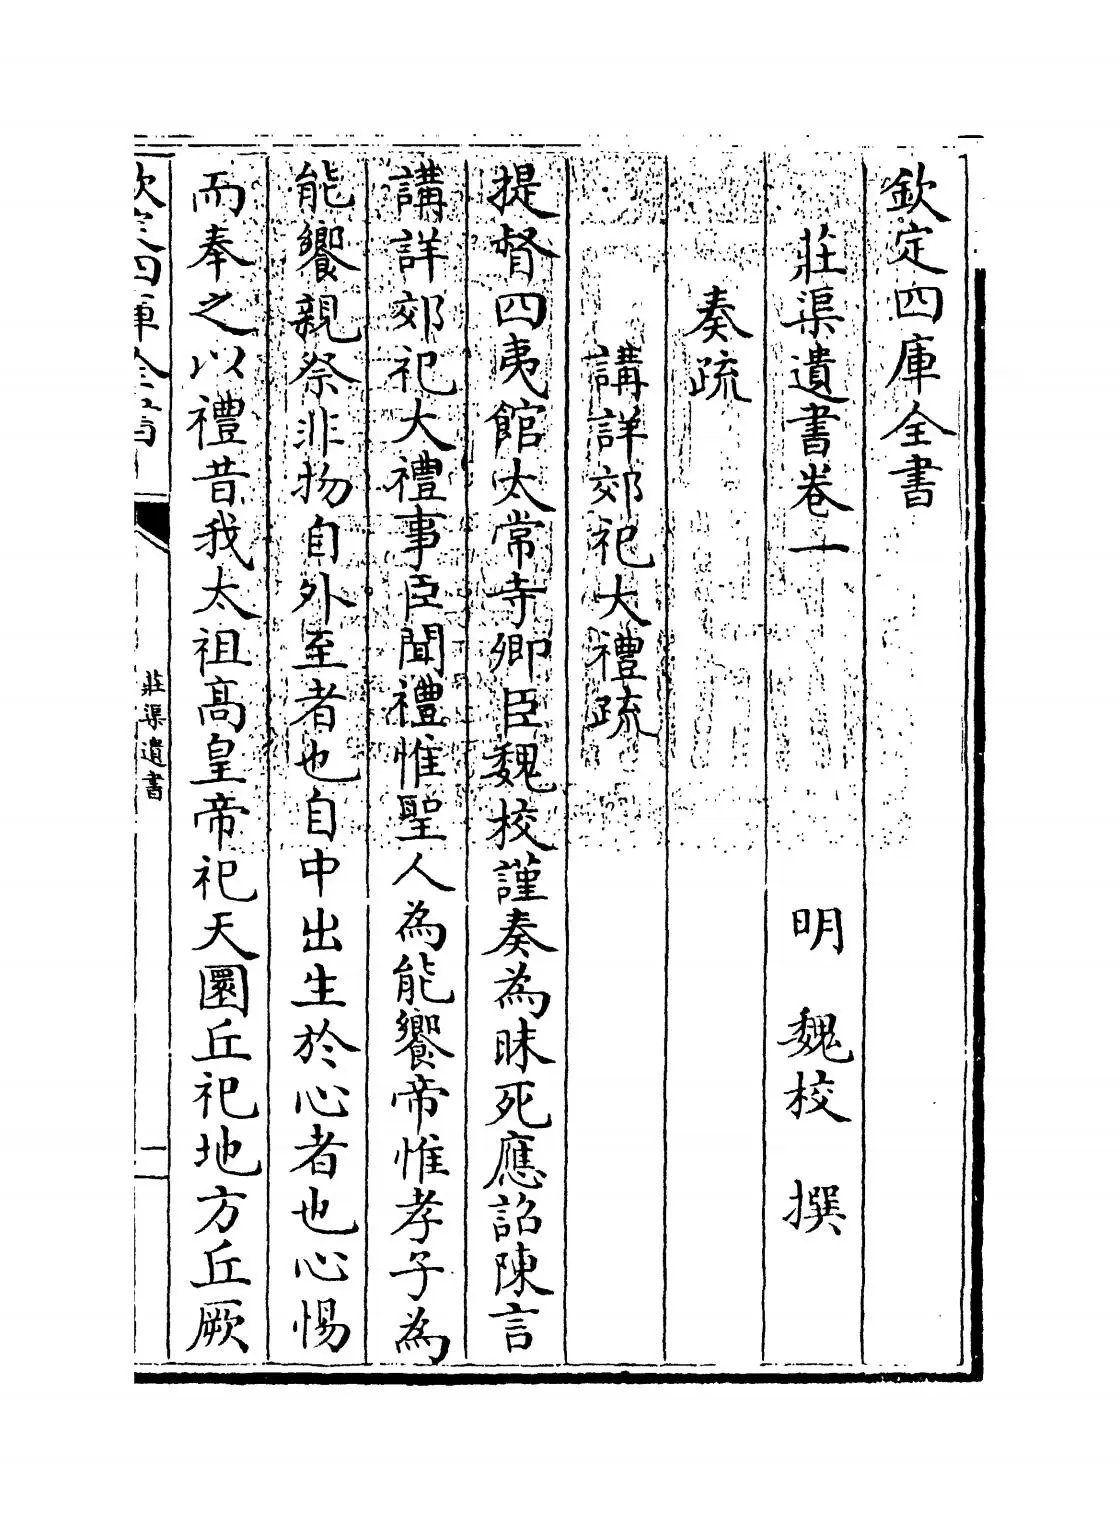 欽定四庫全書
莊渠遺書卷一　明　魏校　撰
奏疏
講詳郊祀大禮疏
提督四夷館太常寺卿臣魏校謹奏為昧死應詔陳言
講詳郊祀大禮事臣聞禮惟聖人為能饗帝惟孝子為
能饗親祭非物自外至者也自中出生於心者也心惕
而奉之以禮昔我太祖高皇帝祀天圜丘祀地方丘厥
欽定四庫全書
莊渠遺書
一